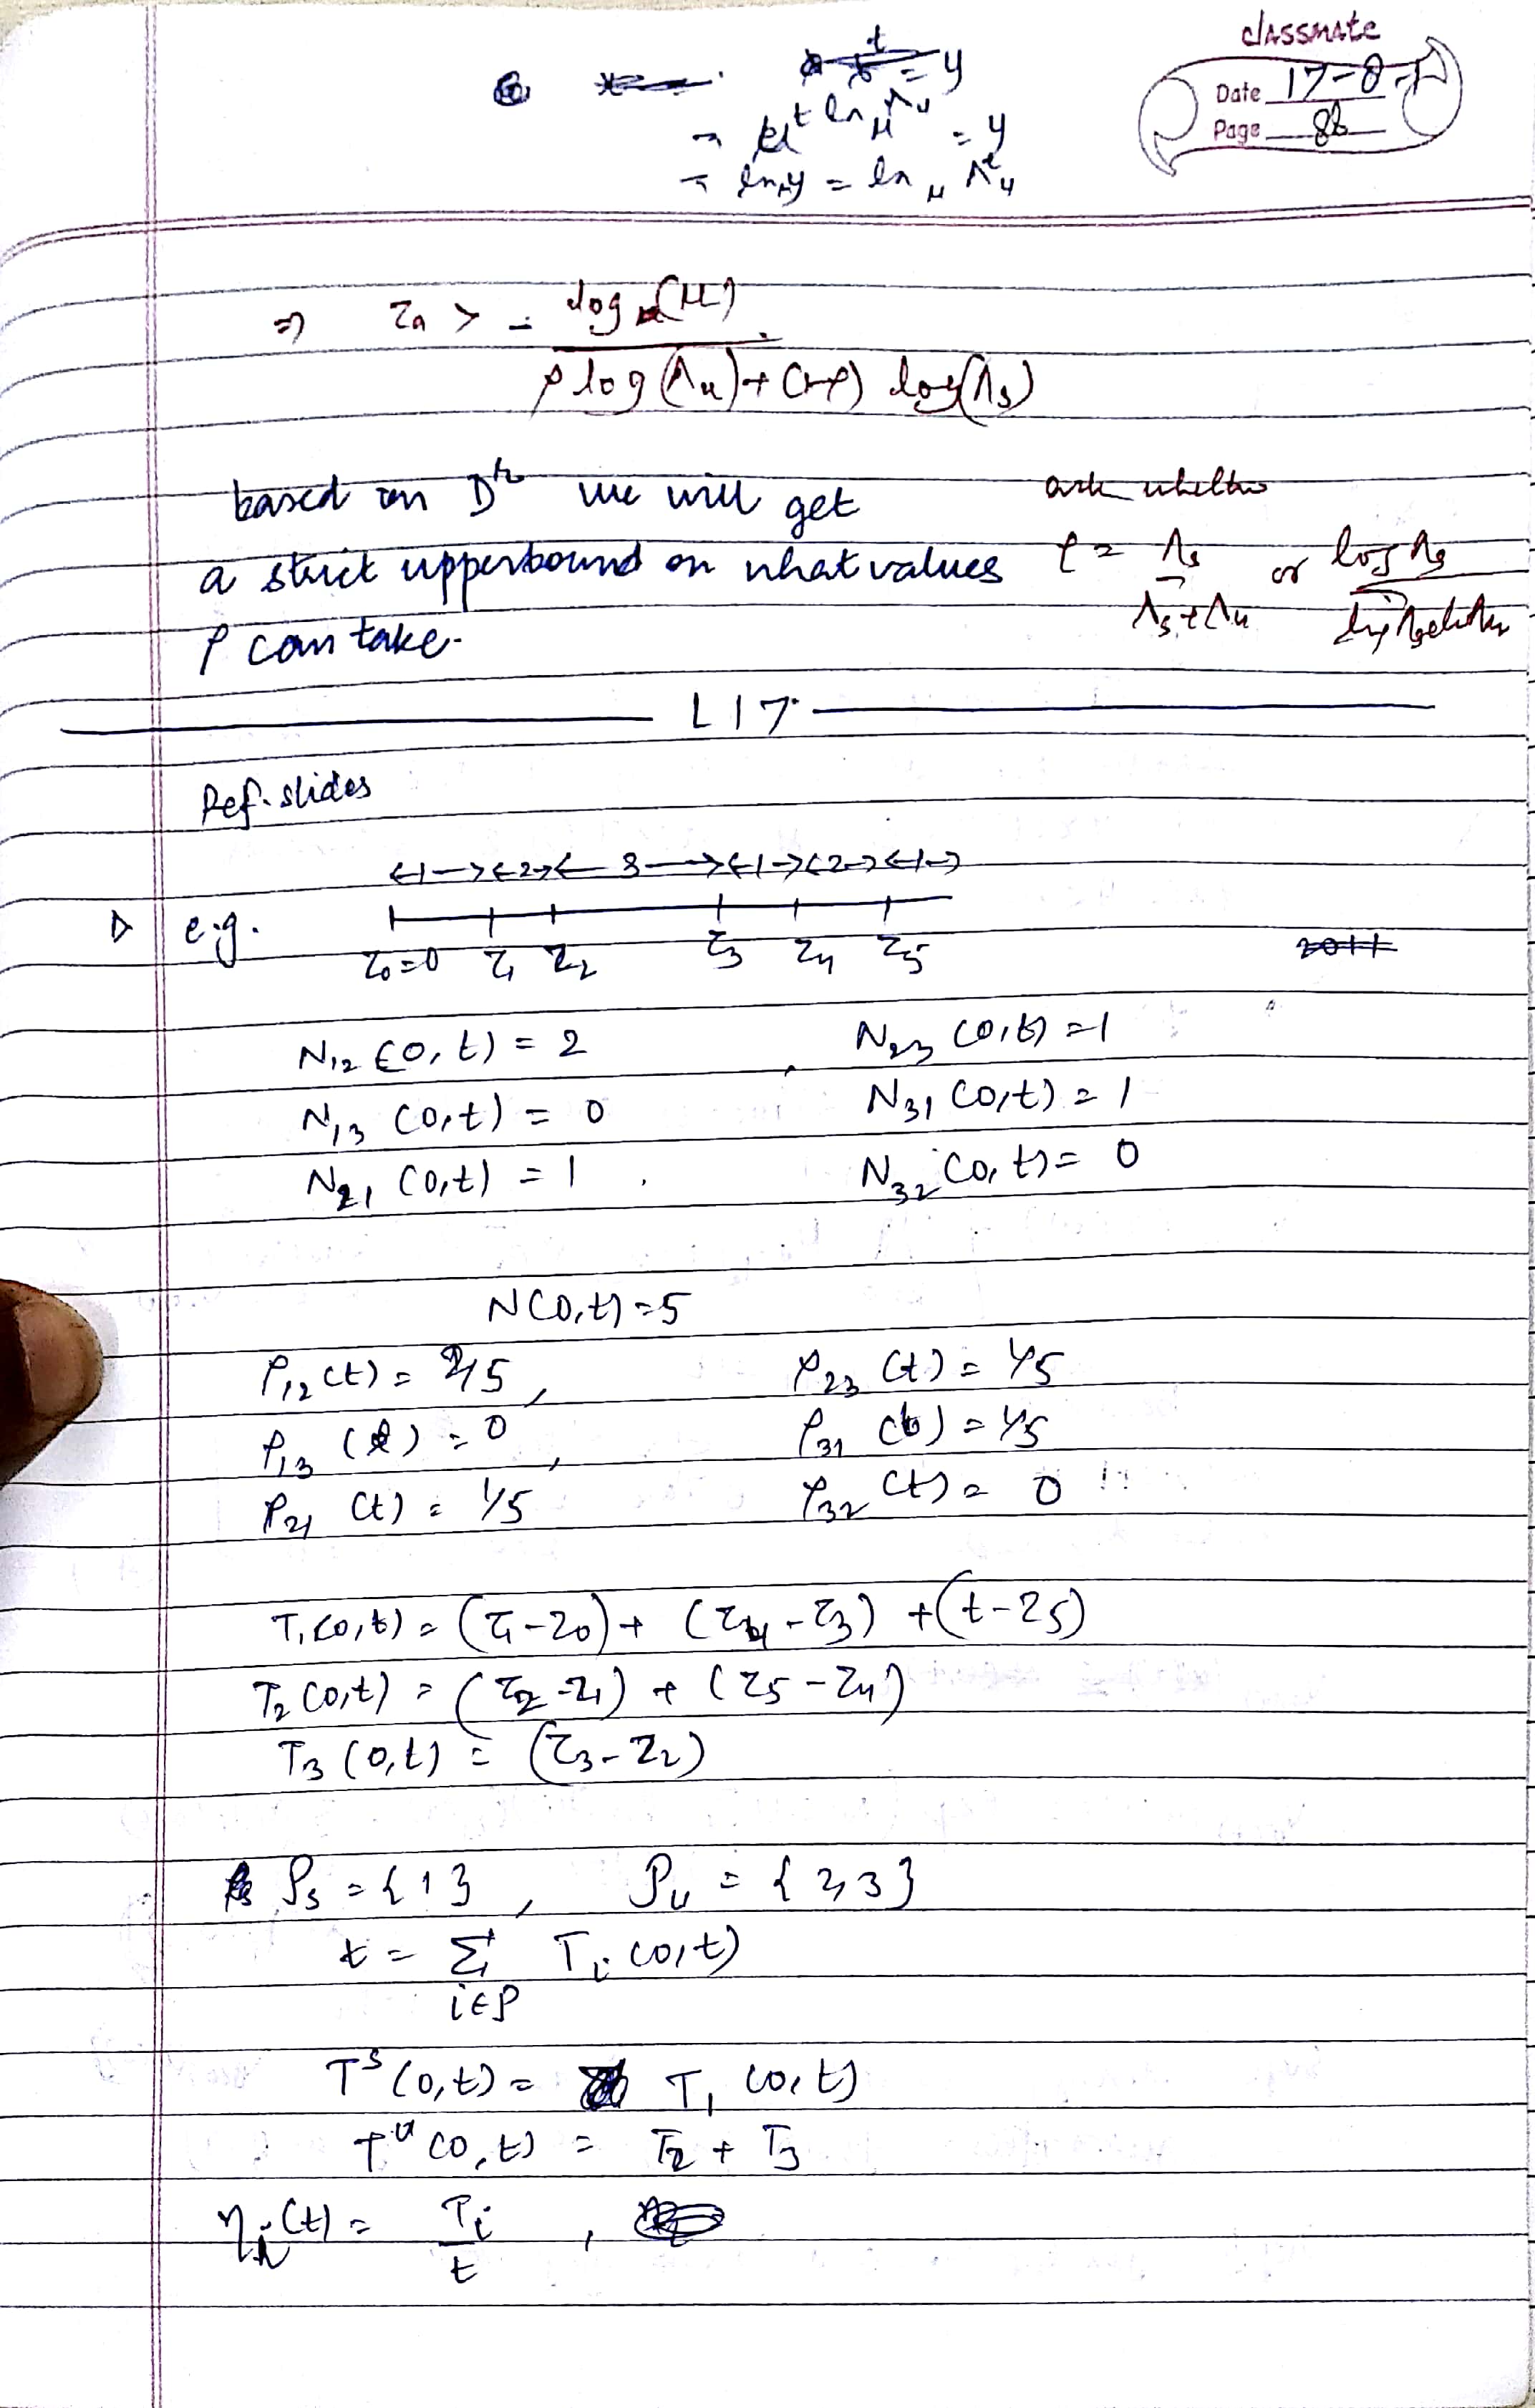 classmate
Date 17-8-
Page 86
= y
→ μ^{t ln_μ Λu} = y
→ ln_μ y = ln_μ Λ^t_u
⇒ τa > - log(μ) / (ρ log(Λu) + (1-ρ) log(Λs))
based on D^r we will get
a strict upperbound on what values
ρ can take.
ask whether
ρ = Λs / (Λs + Λu) or log Λs /
L17
Ref. slides
<-1-><-2-><-3-><-1-><-2-><-1->
▷ e.g.
τ0=0 τ1 τ2 τ3 τ4 τ5
N12 (0, t) = 2 , N23 (0,t) = 1
N13 (0,t) = 0 N31 (0,t) = 1
N21 (0,t) = 1 . N32 (0,t) = 0
N(0,t) = 5
ρ12(t) = 2/5 , ρ23 (t) = 1/5
ρ13 (t) = 0 , ρ31 (t) = 1/5
ρ21 (t) = 1/5 ρ32 (t) = 0
T1(0,t) = (τ1-τ0) + (τ4-τ3) + (t-τ5)
T2 (0,t) = (τ2-τ1) + (τ5-τ4)
T3 (0,t) = (τ3-τ2)
Ps = {1} , Pu = {2,3}
t = Σ_{i∈P} Ti (0,t)
T^s (0,t) = T1 (0,t)
T^u (0,t) = T2 + T3
ηi(t) = Ti / t ,